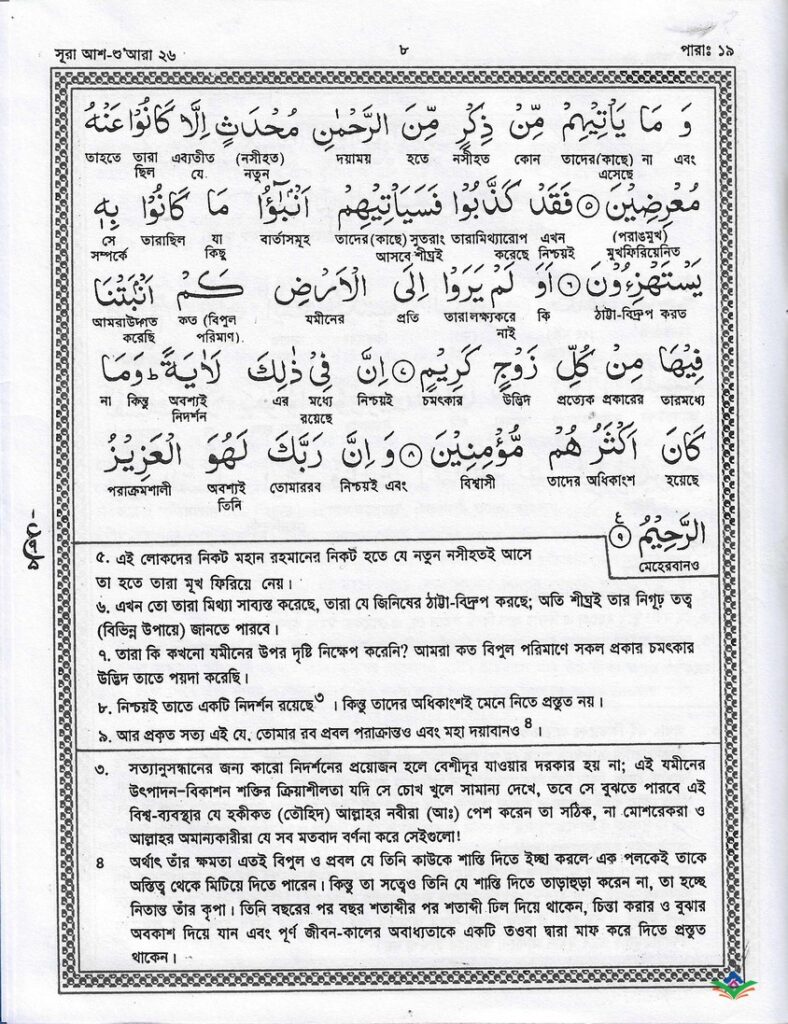 সূরা আশ-শু'আরা ২৬ ৮ পারাঃ ১৯
وَ مَا يَاْتِيْهِمْ مِّنْ ذِكْرٍ مِّنَ الرَّحْمٰنِ مُحْدَثٍ اِلَّا كَانُوْا عَنْهُ
তাহতে তারা এব্যতীত (নসীহত) দয়াময় হতে নসীহত কোন তাদের(কাছে) না এবং
ছিল যে নতুন এসেছে
مُعْرِضِيْنَ ۝٥ فَقَدْ كَذَّبُوْا فَسَيَاْتِيْهِمْ اَنْۢبٰٓؤُا مَا كَانُوْا بِهٖ
সে তারাছিল যা বার্তাসমূহ তাদের(কাছে) সুতরাং তারামিথ্যারোপ এখন (পরাঙমুখ)
সম্পর্কে কিছু আসবে শীঘ্রই করেছে নিশ্চয়ই মুখফিরিয়েনিত
يَسْتَهْزِءُوْنَ ۝٦ اَوَ لَمْ يَرَوْا اِلَى الْاَرْضِ كَمْ اَنْۢبَتْنَا
আমরাউদ্গত কত (বিপুল যমীনের প্রতি তারালক্ষ্যকরে কি ঠাট্টা-বিদ্রুপ করত
করেছি পরিমাণ) নাই
فِيْهَا مِنْ كُلِّ زَوْجٍ كَرِيْمٍ ۝٧ اِنَّ فِيْ ذٰلِكَ لَاٰيَةً ؕ وَمَا
না কিন্তু অবশ্যই এর মধ্যে নিশ্চয়ই চমৎকার উদ্ভিদ প্রত্যেক প্রকারের তারমধ্যে
নিদর্শন রয়েছে
كَانَ اَكْثَرُ هُمْ مُّؤْمِنِيْنَ ۝٨ وَ اِنَّ رَبَّكَ لَهُوَ الْعَزِيْزُ
পরাক্রমশালী অবশ্যই তোমাররব নিশ্চয়ই এবং বিশ্বাসী তাদের অধিকাংশ হয়েছে
তিনি
الرَّحِيْمُ ۝٩
মেহেরবানও
৫. এই লোকদের নিকট মহান রহমানের নিকট হতে যে নতুন নসীহতই আসে
তা হতে তারা মূখ ফিরিয়ে নেয়।
৬. এখন তো তারা মিথ্যা সাব্যস্ত করেছে, তারা যে জিনিষের ঠাট্টা-বিদ্রুপ করছে; অতি শীঘ্রই তার নিগূঢ় তত্ব
(বিভিন্ন উপায়ে) জানতে পারবে।
৭. তারা কি কখনো যমীনের উপর দৃষ্টি নিক্ষেপ করেনি? আমরা কত বিপুল পরিমাণে সকল প্রকার চমৎকার
উদ্ভিদ তাতে পয়দা করেছি।
৮. নিশ্চয়ই তাতে একটি নিদর্শন রয়েছে৩ । কিন্তু তাদের অধিকাংশই মেনে নিতে প্রস্তুত নয়।
৯. আর প্রকৃত সত্য এই যে, তোমার রব প্রবল পরাক্রান্তও এবং মহা দয়াবানও ৪।
৩. সত্যানুসন্ধানের জন্য কারো নিদর্শনের প্রয়োজন হলে বেশীদূর যাওয়ার দরকার হয় না; এই যমীনের
উৎপাদন-বিকাশন শক্তির ক্রিয়াশীলতা যদি সে চোখ খুলে সামান্য দেখে, তবে সে বুঝতে পারবে এই
বিশ্ব-ব্যবস্থার যে হকীকত (তৌহিদ) আল্লাহর নবীরা (আঃ) পেশ করেন তা সঠিক, না মোশরেকরা ও
আল্লাহর অমান্যকারীরা যে সব মতবাদ বর্ণনা করে সেইগুলো!
৪ অর্থাৎ তাঁর ক্ষমতা এতই বিপুল ও প্রবল যে তিনি কাউকে শাস্তি দিতে ইচ্ছা করলে এক পলকেই তাকে
অস্তিত্ব থেকে মিটিয়ে দিতে পারেন। কিন্তু তা সত্বেও তিনি যে শাস্তি দিতে তাড়াহুড়া করেন না, তা হচ্ছে
নিতান্ত তাঁর কৃপা। তিনি বছরের পর বছর শতাব্দীর পর শতাব্দী ঢিল দিয়ে থাকেন, চিন্তা করার ও বুঝার
অবকাশ দিয়ে যান এবং পূর্ণ জীবন-কালের অবাধ্যতাকে একটি তওবা দ্বারা মাফ করে দিতে প্রস্তুত
থাকেন।